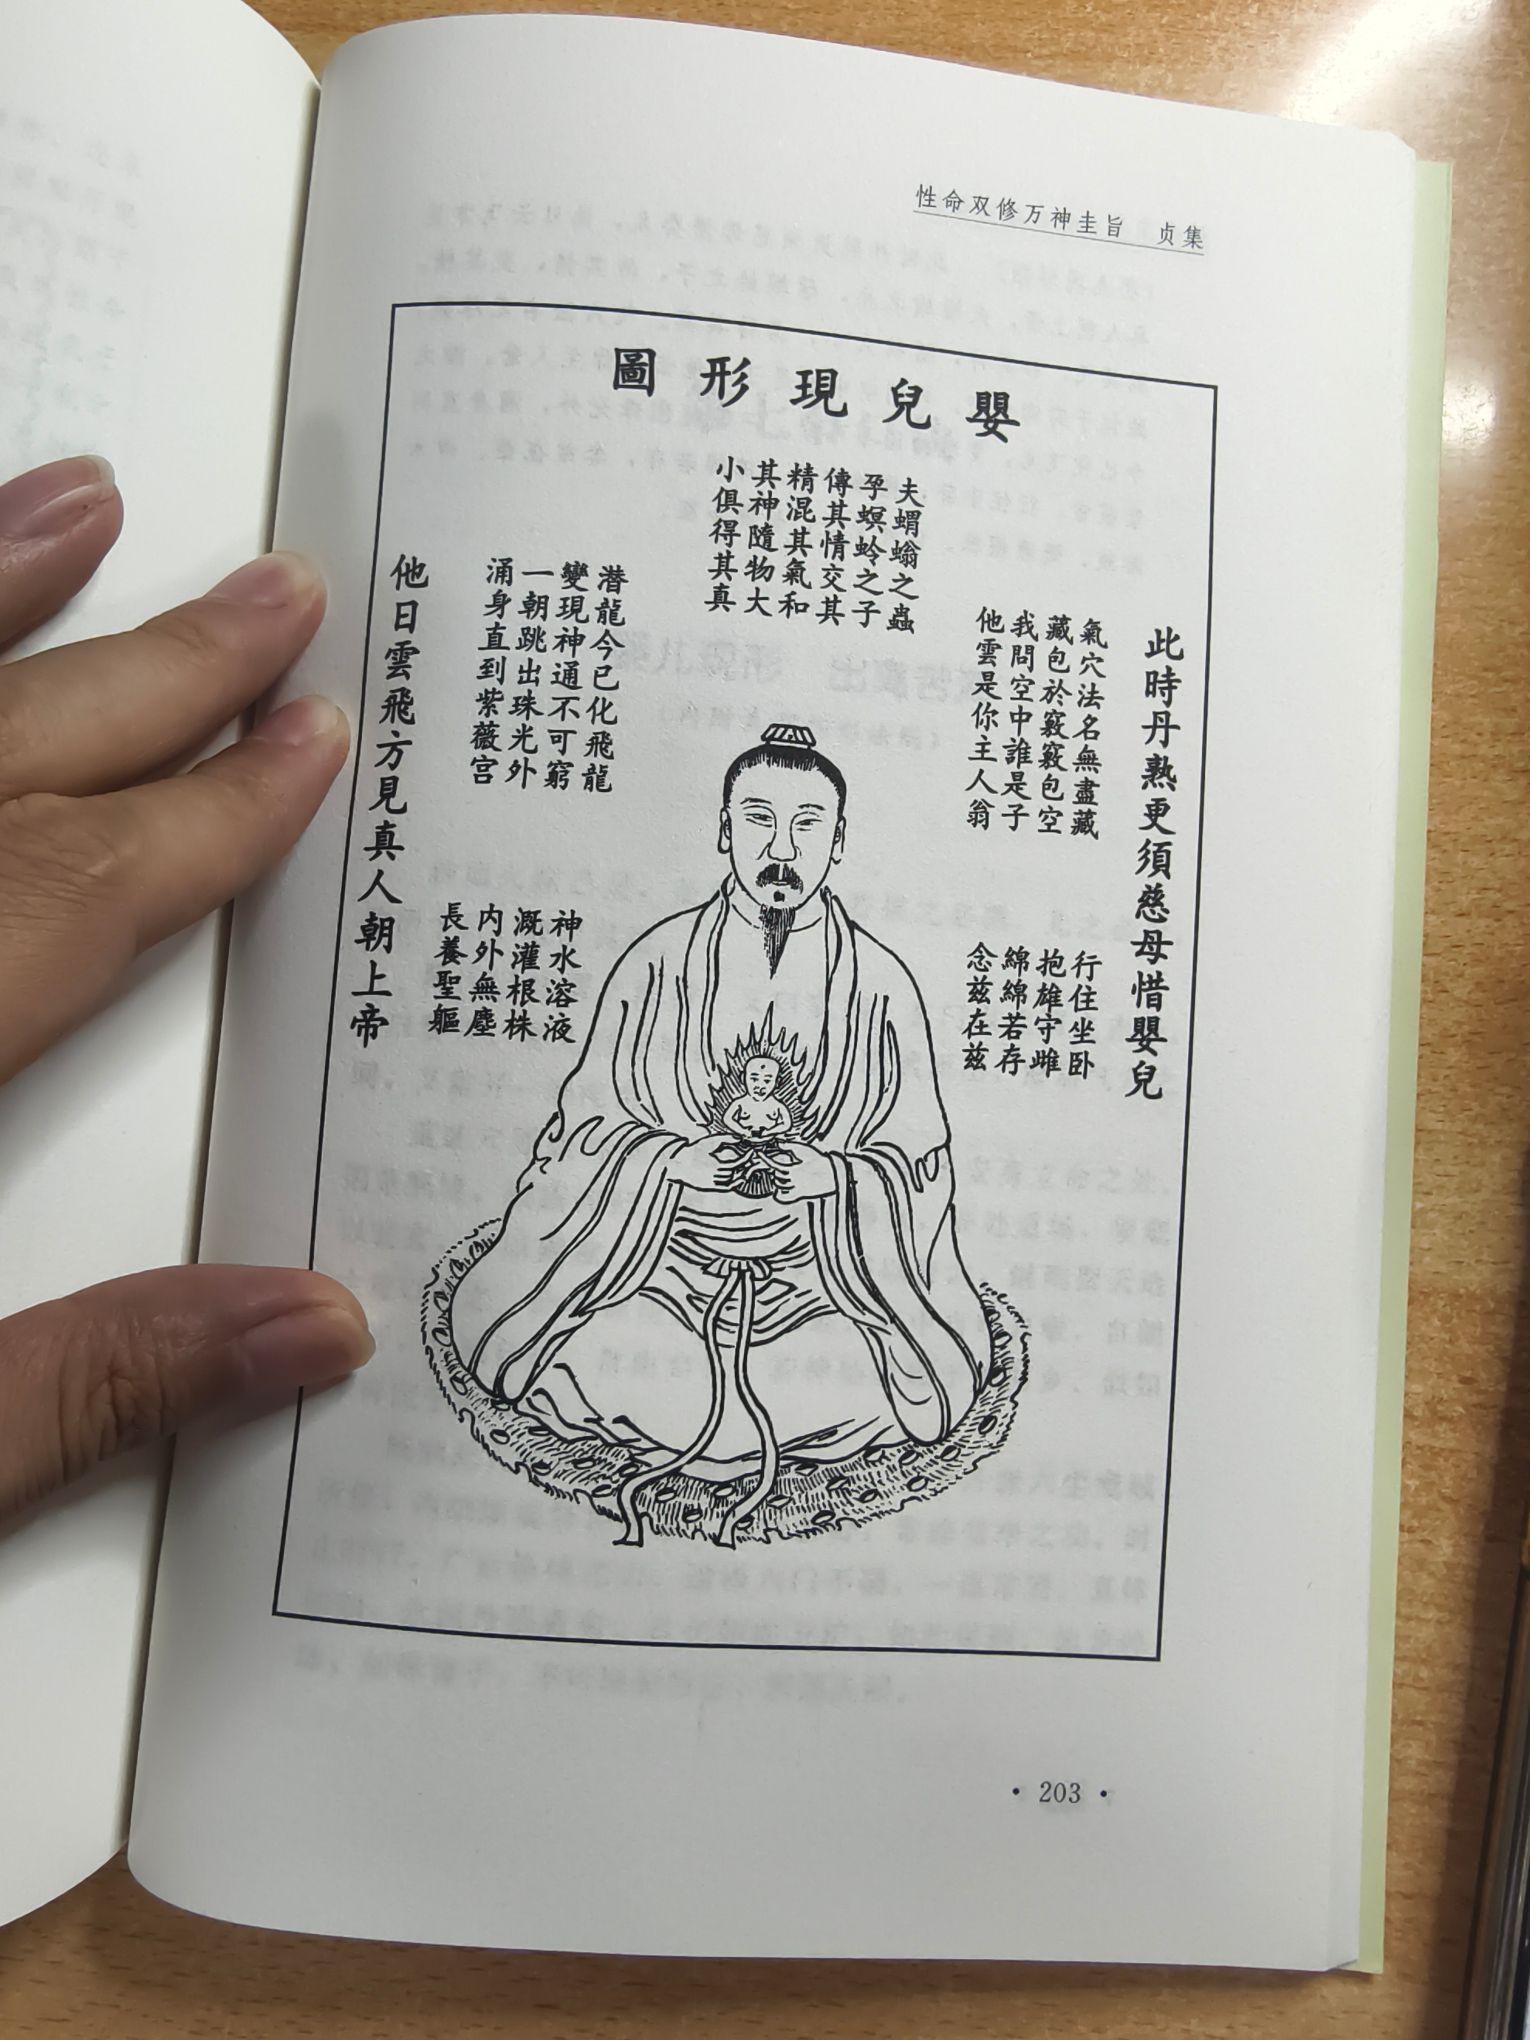 性命双修万神圭旨　贞集
嬰兒現形圖
此時丹熟更須慈母惜嬰兒
氣穴法名無盡藏
藏包於竅竅包空
我問空中誰是子
他雲是你主人翁
行住坐卧
抱雄守雌
綿綿若存
念茲在茲
夫蝟螉之蟲
孕螟蛉之子
傳其情交其
精混其氣和
其神隨物大
小俱得其真
潛龍今已化飛龍
變現神通不可窮
一朝跳出珠光外
涌身直到紫薇宮
神水溶液
溉灌根株
內外無塵
長養聖軀
他日雲飛方見真人朝上帝
· 203 ·